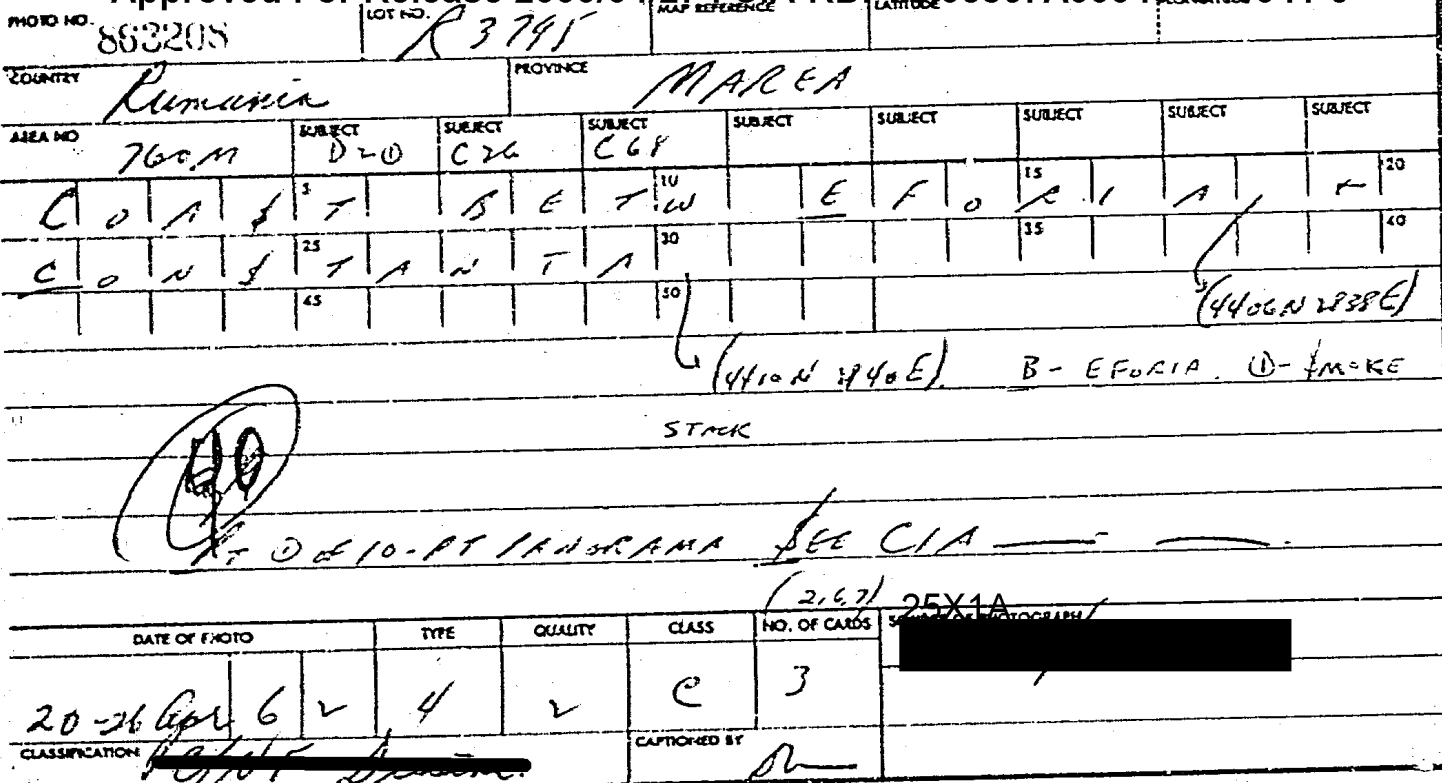 Approved For Release
PHOTO NO. 863208 LOT NO. R 3795 MAP REFERENCE LATITUDE
COUNTRY Rumania PROVINCE MAREA
AREA NO 760M SUBJECT D20① SUBJECT C26 SUBJECT C68 SUBJECT SUBJECT SUBJECT SUBJECT SUBJECT
5 10 15 20
COAST BETW EFORIA, +
25 30 35 40
CONSTANTA
45 50 (4406N 2838E)
(4410N 2840E) B- EFORIA. ①- SMOKE
STACK
PT ① OF 10-PT PANORAMA SEE CIA
(2,6,7) 25X1A
DATE OF PHOTO TYPE QUALITY CLASS NO. OF CARDS SOURCE OF PHOTOGRAPH
20-26 Apr 62 4 2 C 3
CLASSIFICATION CAPTIONED BY